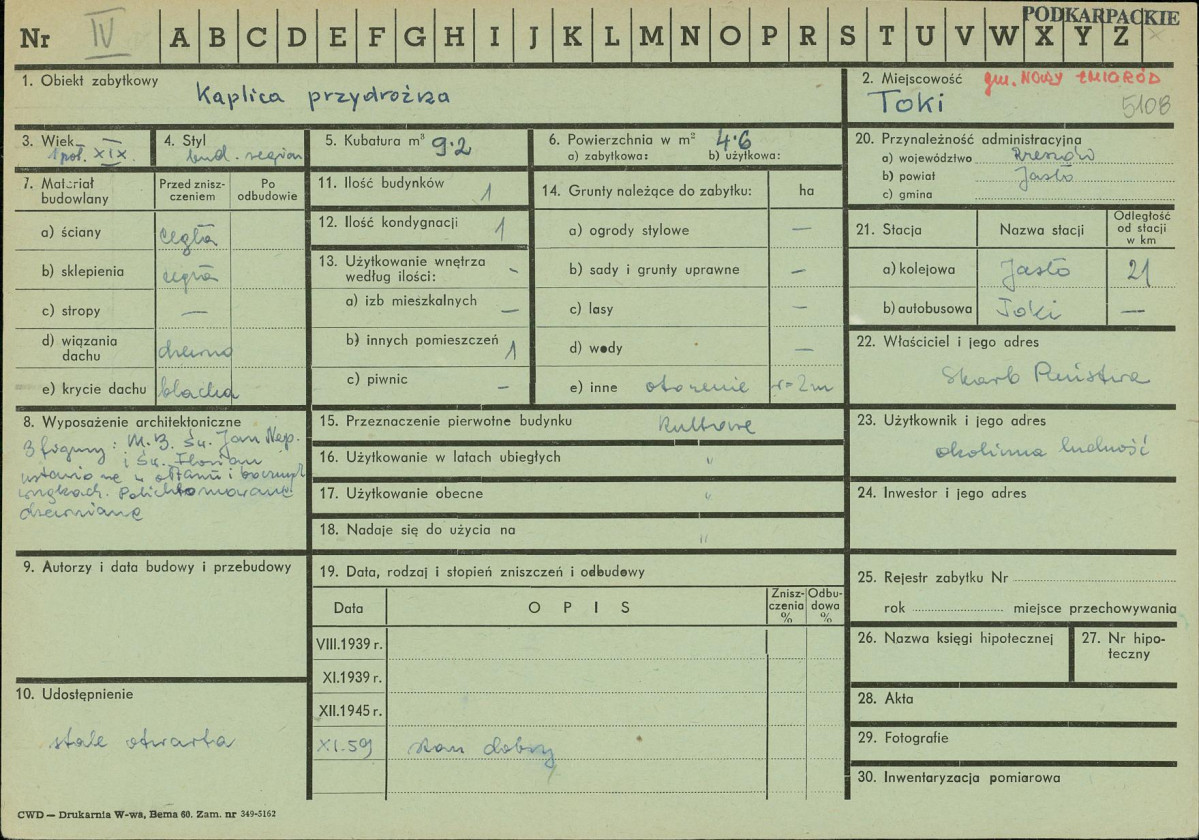 PODKARPACKIE
Nr IV A B C D E F G H I J K L M N O P R S T U V W X Y Z
1. Obiekt zabytkowy
Kaplica przydrożna
2. Miejscowość gm. NOWY ŻMIGRÓD
Toki 5108
3. Wiek
1 poł. XIX.
4. Styl
bud. region
5. Kubatura m³ 9.2
6. Powierzchnia w m² 4.6
a) zabytkowa: b) użytkowa:
20. Przynależność administracyjna
a) województwo Rzeszów
b) powiat Jasło
c) gmina
7. Materiał budowlany
Przed zniszczeniem
Po odbudowie
a) ściany cegła
b) sklepienia cegła
c) stropy —
d) wiązania dachu drewno
e) krycie dachu blacha
11. Ilość budynków 1
12. Ilość kondygnacji 1
13. Użytkowanie wnętrza według ilości: -
a) izb mieszkalnych —
b) innych pomieszczeń 1
c) piwnic -
14. Grunty należące do zabytku: ha
a) ogrody stylowe —
b) sady i grunty uprawne —
c) lasy —
d) wody —
e) inne otoczenie r=2m
21. Stacja
Nazwa stacji
Odległość od stacji w km
a) kolejowa Jasło 21
b) autobusowa Toki —
22. Właściciel i jego adres
Skarb Państwa
8. Wyposażenie architektoniczne
3 figury: M.B. Św. Jan Nep.
i Św. Florian
ustawione w ołtarzu i bocznych
wnękach. Polichromowane
drewniane
15. Przeznaczenie pierwotne budynku kultowe
16. Użytkowanie w latach ubiegłych "
17. Użytkowanie obecne "
18. Nadaje się do użycia na "
23. Użytkownik i jego adres
okoliczna ludność
24. Inwestor i jego adres
9. Autorzy i data budowy i przebudowy
19. Data, rodzaj i stopień zniszczeń i odbudowy
Data OPIS Zniszczenia % Odbudowa %
VIII.1939 r.
XI.1939 r.
XII.1945 r.
XI.59 stan dobry
25. Rejestr zabytku Nr
rok miejsce przechowywania
26. Nazwa księgi hipotecznej
27. Nr hipoteczny
10. Udostępnienie
stale otwarta
28. Akta
29. Fotografie
30. Inwentaryzacja pomiarowa
CWD — Drukarnia W-wa, Bema 60. Zam. nr 349-5162